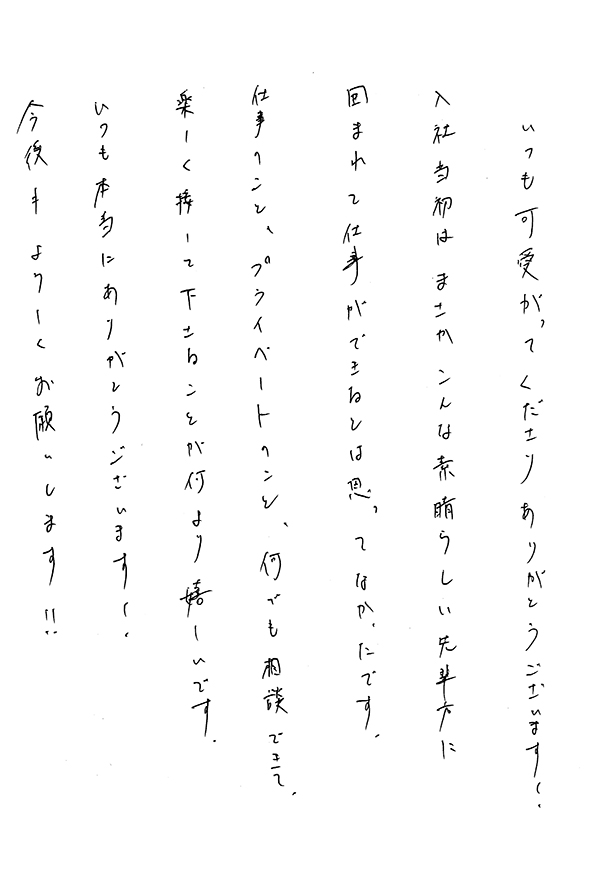 いつも可愛がってくださりありがとうございます!
入社当初はまさかこんな素晴らしい先輩方に
囲まれて仕事ができるとは思ってなかったです。
仕事のこと、プライベートのこと、何でも相談できて、
楽しく接して下さることが何より嬉しいです。
いつも本当にありがとうございます!
今後もよろしくお願いします!!